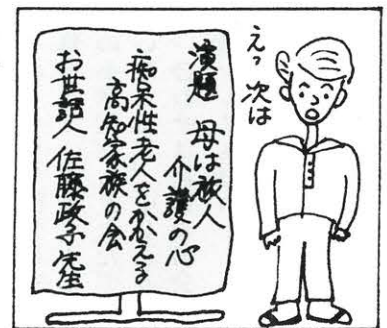 えっ
次は
演題 母は旅人
介護の心
痴呆性老人をかかえる
高知家族の会
お世話人 佐藤政子先生